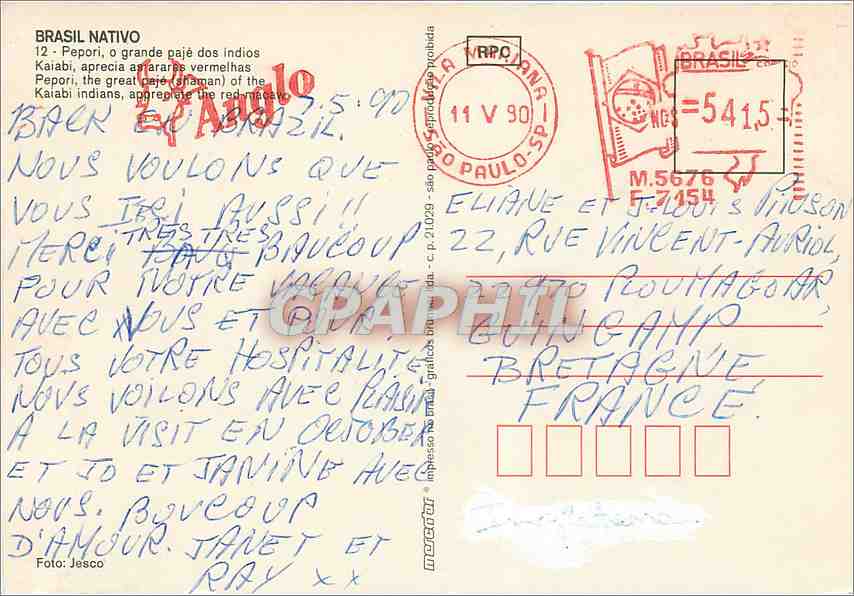 BRASIL NATIVO
12 - Pepori, o grande pajé dos índios
Kaiabi, aprecia as araras vermelhas
Pepori, the great pajé (shaman) of the
Kaiabi indians, appreciate the red-macaw
Anglo
5.90
BACK EN BRAZIL.
NOUS VOULONS QUE
VOUS ICI AUSSI!!
MERCI TRES TRES BAUCOUP
POUR NOTRE VACANCE
AVEC VOUS ET POUR
TOUS VOTRE HOSPITALITE
NOUS VOILONS AVEC PLAISIR
A LA VISIT EN OCTOBER
ET JO ET JANINE AVEC
NOUS. BOUCOUP
D'AMOUR. JANET ET
RAY xx
Foto: Jesco
mercator ® impresso no brasil - gráficos brunner ltda - c. p. 21.029 - são paulo - reprodução proibida
RPC
VILA MARIANA
11 V 90
SÃO PAULO-SP
BRASIL
=541,5
M.5676
F-7154
ELIANE ET J-LOUIS PINSON
22, RUE VINCENT-AURIOL,
22970 PLOUMAGOAR,
GUINGAMP,
BRETAGNE,
FRANCE.
CPAPHIL